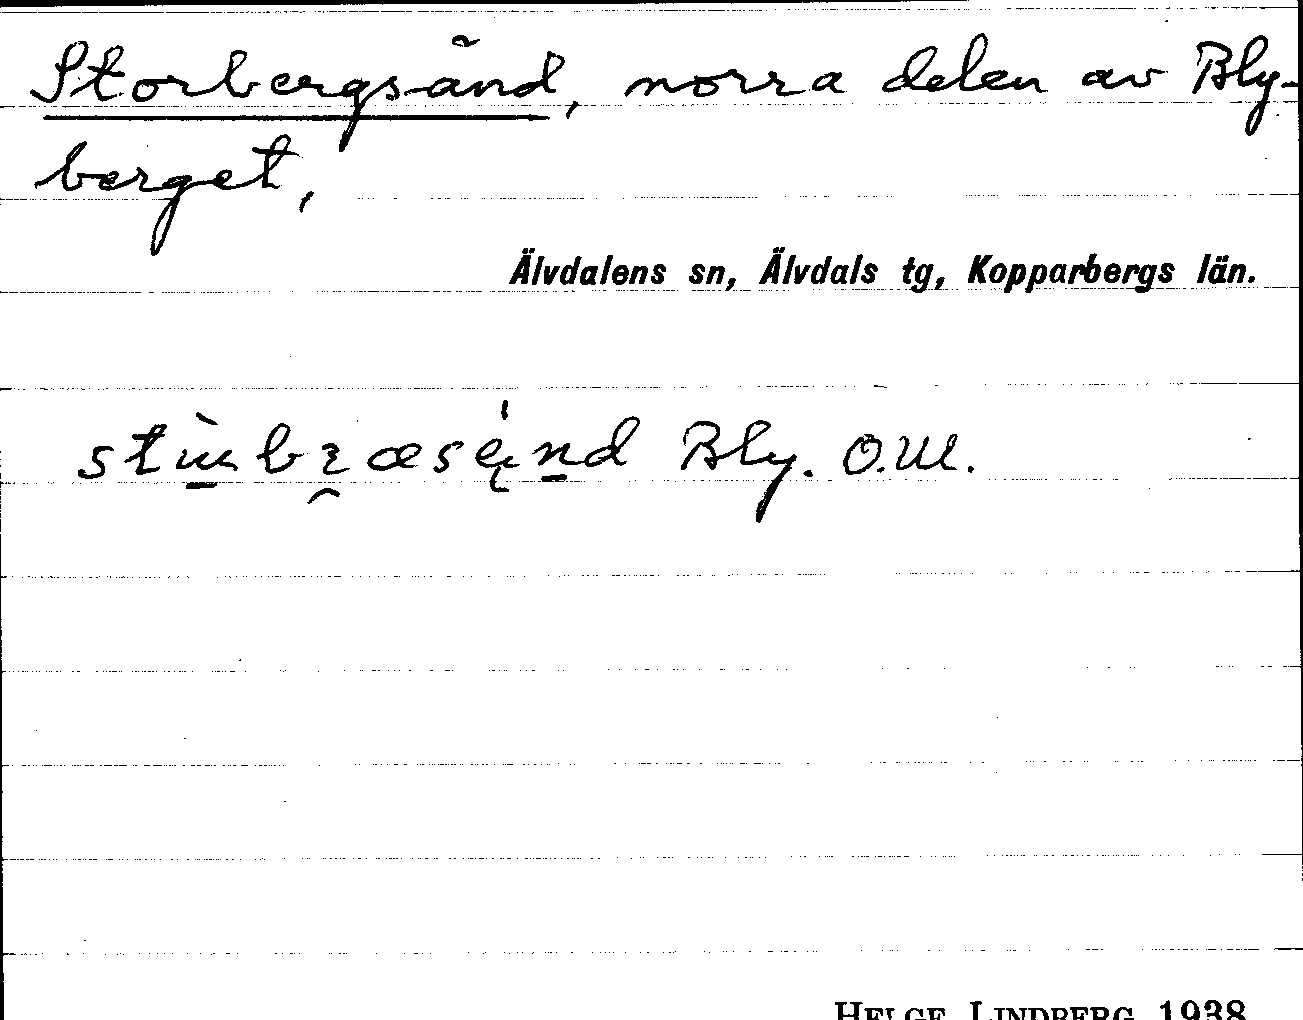 Storbergsänd, norra delen av Bly-
berget,
Älvdalens sn, Älvdals tg, Kopparbergs län.
Bly. O.M.
HELGE LINDBERG 1938